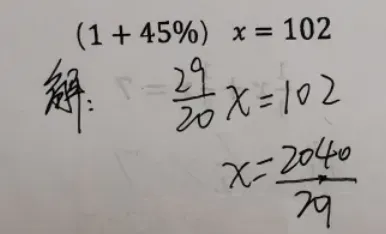 (1 + 45%) x = 102
解: 29/20 x = 102
x = 2040/29